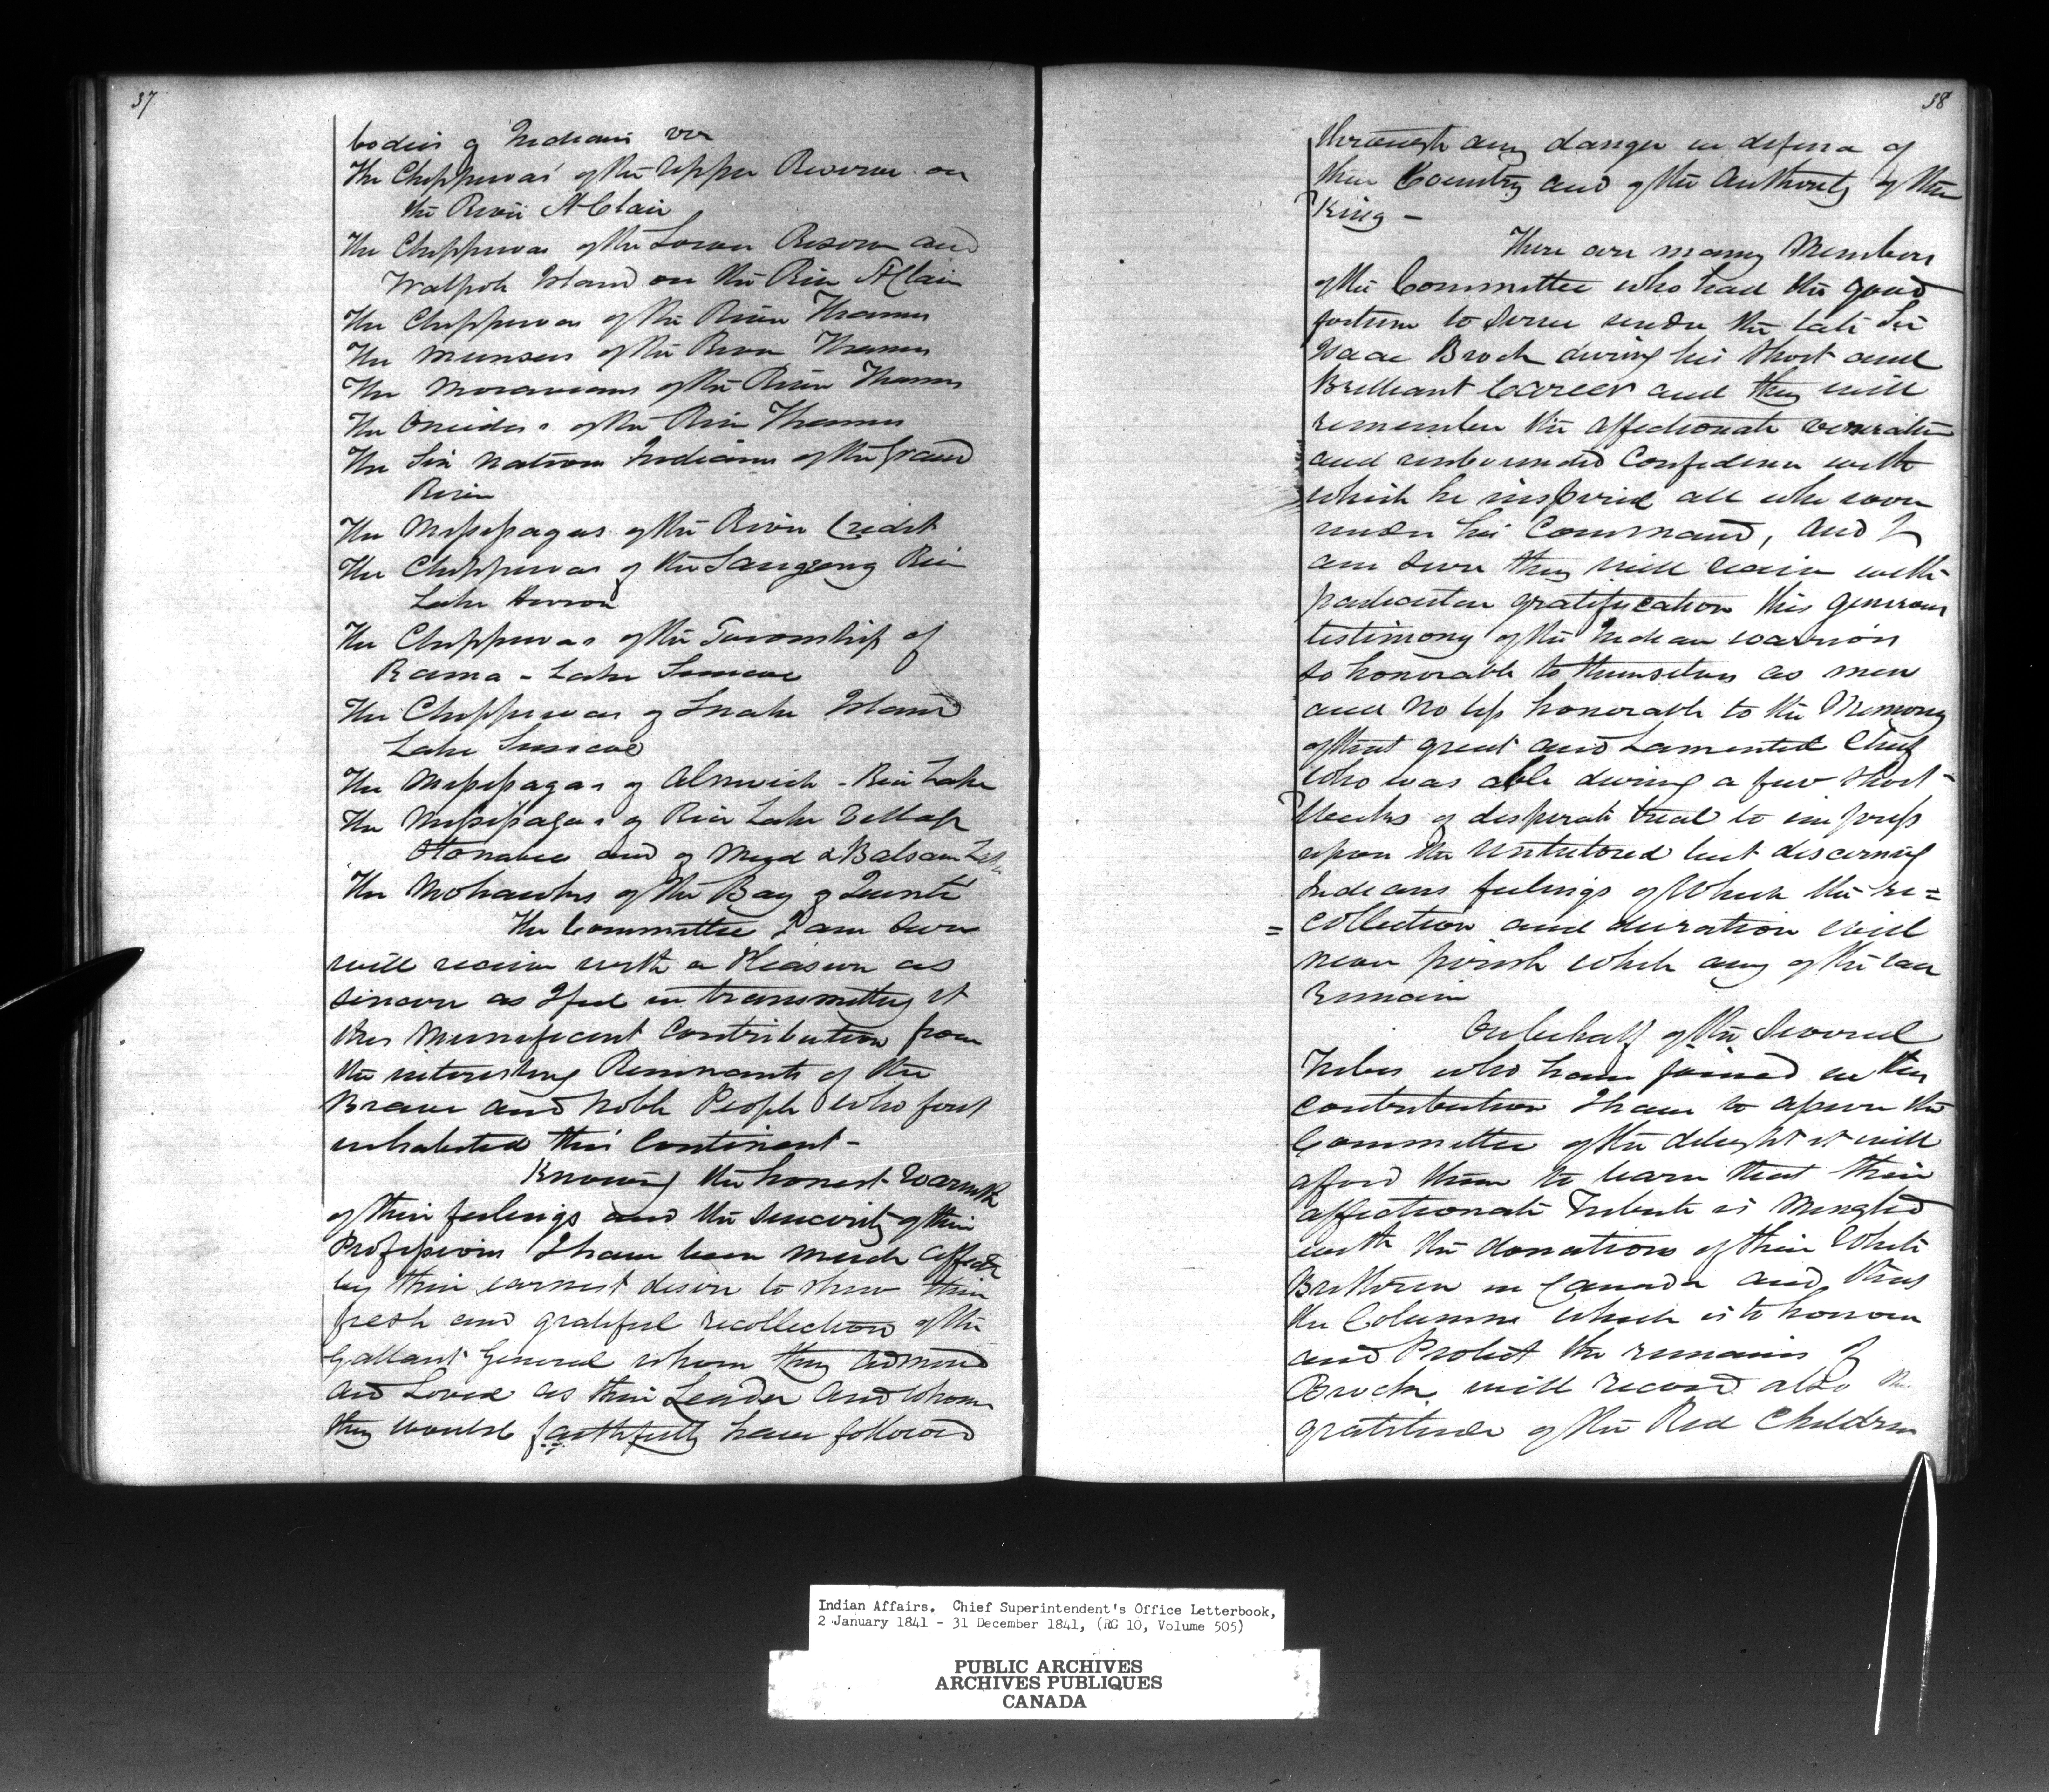 37
bodies of Indians viz
The Chippewas of the Upper Reserve on
the River St Clair
The Chippewas of the Lower Reserve and
Walpole Island on the River St Clair
The Chippewas of the River Thames
The Munsees of the River Thames
The Moravians of the River Thames
The Oneidas of the River Thames
The Six Nations Indians of the Grand
River
The Missisagas of the River Credit
The Chippewas of the Saugeeng River
Lake Huron
The Chippewas of the Township of
Rama - Lake Simcoe
The Chippewas of Snake Island
Lake Simcoe
The Missisagas of Alnwick - Rice Lake
The Missisagas of Rice Lake
Otonabee and of Mud & Balsam Lake
The Mohawks of the Bay of Quinté
The Committee I am sure
will receive with a Pleasure as
sincere as I feel in transmitting it
this Munificent Contribution from
the interesting Remnants of the
Brave and Noble People who first
inhabited this Continent -
Knowing the honest Warmth
of their feelings and the sincerity of their
Professions I have been much affected
by their earnest desire to shew their
fresh and grateful recollection of the
Gallant General whom they admired
and Loved as their Leader and whom
they would faithfully have followed
38
through any danger in defense of
their Country and of the Authority of the
King -
There are many Members
of the Committee who had the good
fortune to serve under the late Sir
Isaac Brock during his short and
Brilliant Career and they will
remember the affectionate veneration
and unbounded Confidence with
which he inspired all who were
under his Command, and I
am sure they will receive with
particular gratification this generous
testimony of the Indian warriors
so honorable to themselves as men
and no less honorable to the Memory
of that great and Lamented Chief
who was able during a few short
Weeks of desperate trial to impress
upon the untutored but discerning
Indians feelings of Which the re=
=collection and duration will
never perish while any of the
remain
On behalf of the Several
Tribes who have joined in this
contribution I have to assure the
Committee of the delight it will
afford them to learn that their
affectionate Tribute is Mingled
with the donations of their White
Brethren in Canada and thus
the Column which is to honour
and Protect the remains of
Brock will record also the
gratitude of the Red Children
Indian Affairs. Chief Superintendent's Office Letterbook,
2 January 1841 - 31 December 1841, (RG 10, Volume 505)
PUBLIC ARCHIVES
ARCHIVES PUBLIQUES
CANADA